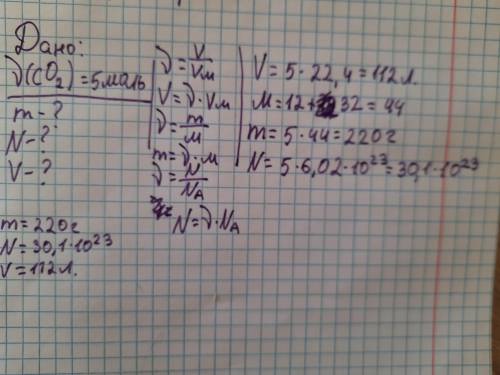 Дано:
ν(CO₂)=5моль
m-?
N-?
V-?
ν=V/Vм
V=ν·Vм
ν=m/M
m=ν·M
ν=N/NA
N=ν·NA
V=5·22,4=112л.
M=12+32=44
m=5·44=220г
N=5·6,02·10²³=30,1·10²³
m=220г
N=30,1·10²³
V=112л.